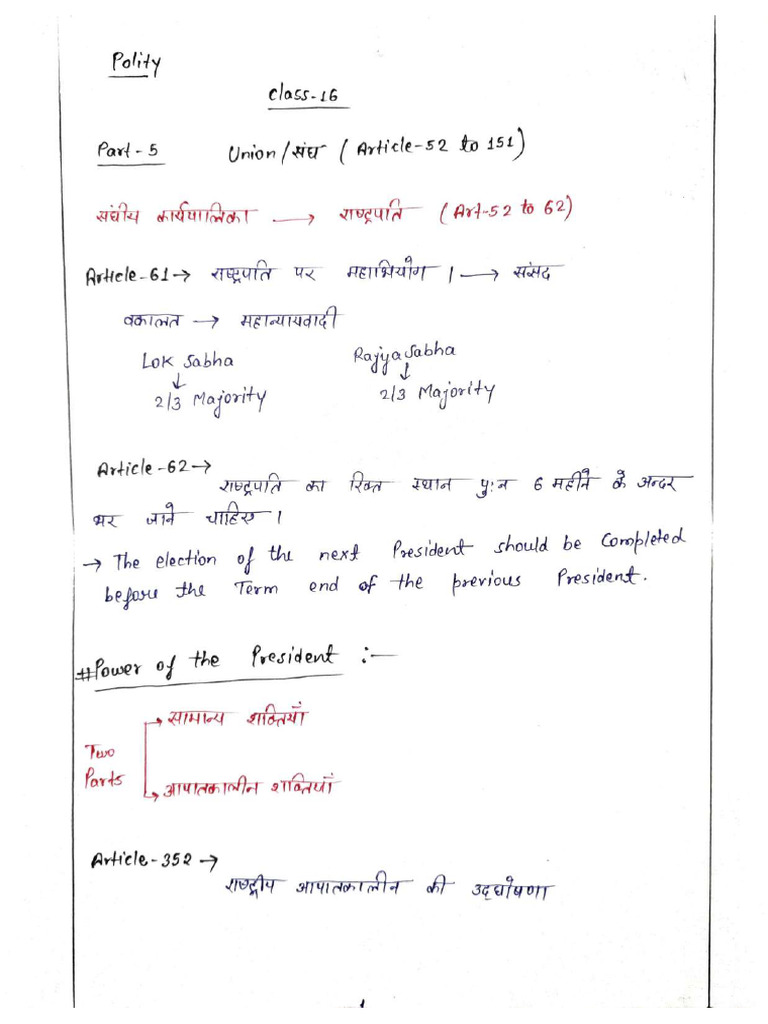 Polity
Class-16
Part-5 Union/संघ (Article-52 to 151)
संघीय कार्यपालिका → राष्ट्रपति (Art-52 to 62)
Article-61→ राष्ट्रपति पर महाभियोग । → संसद
वकालत → महान्यायवादी
Lok Sabha Rajya Sabha
↓ ↓
2/3 Majority 2/3 Majority
Article-62→
राष्ट्रपति का रिक्त स्थान पु:न 6 महीने के अन्दर
भर जाने चाहिए ।
→ The election of the next President should be Completed
before the Term end of the previous President.
#Power of the President :-
→ सामान्य शक्तियाँ
Two
Parts
→ आपातकालीन शक्तियाँ
Article-352→
राष्ट्रीय आपातकालीन की उद्घोषणा
1